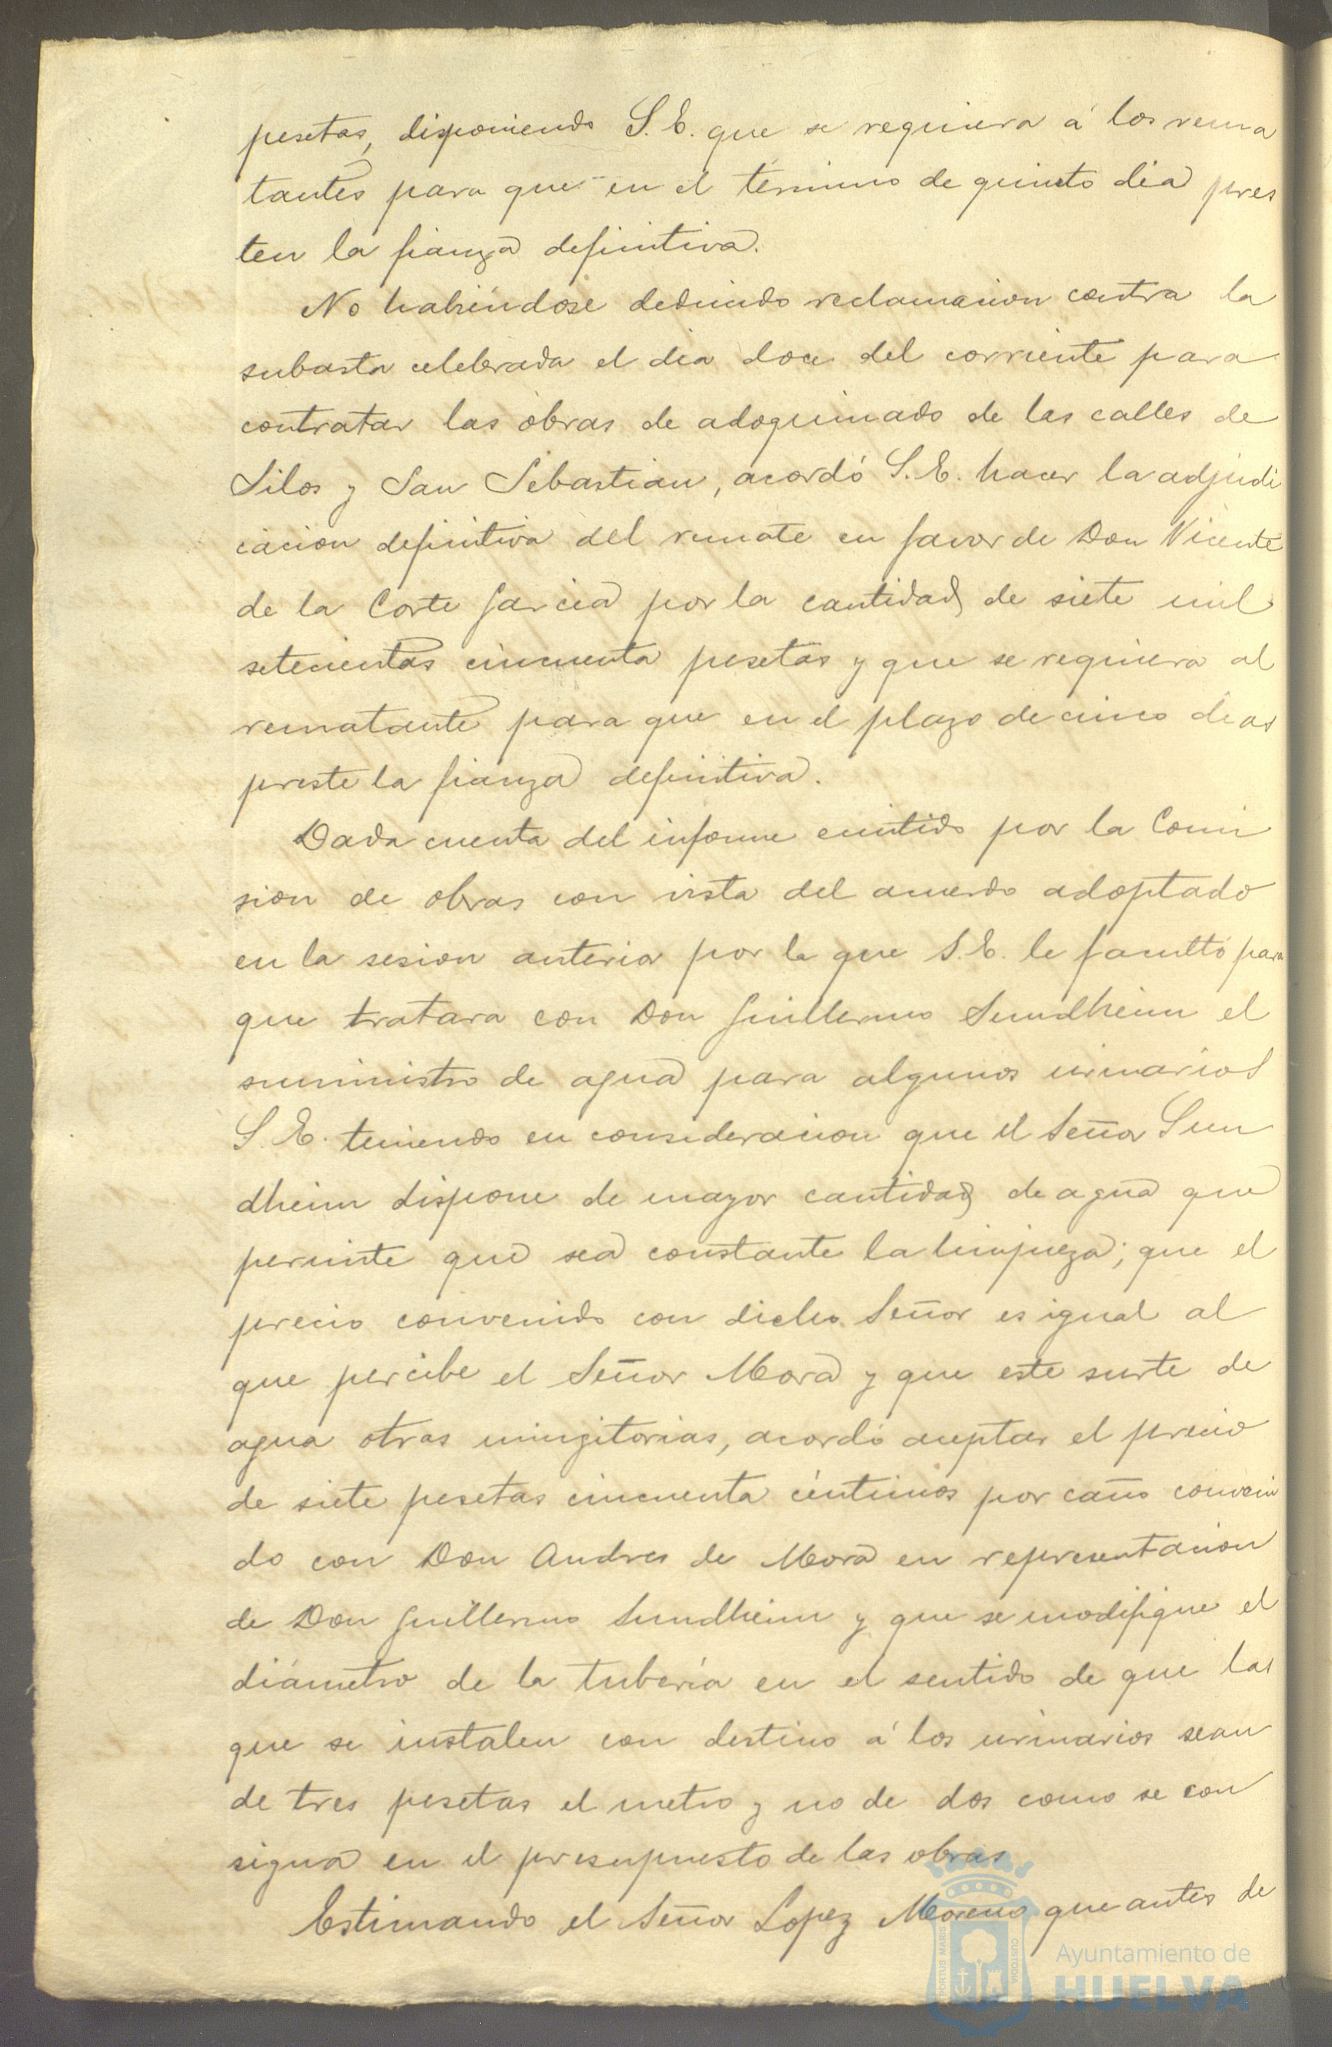 pesetas, disponiendo S.E. que se requiera á los rema
tantes para que en el término de quinto dia pres
ten la fianza definitiva.
No habiéndose deducido reclamacion contra la
subasta celebrada el dia doce del corriente para
contratar las obras de adoquinado de las calles de
Silos y San Sebastian, acordó S.E. hacer la adjudi
cacion definitiva del remate en favor de Don Vicente
de la Corte Garcia por la cantidad de siete mil
setecientas cincuenta pesetas y que se requiera al
rematante para que en el plazo de cinco dias
preste la fianza definitiva.
Dada cuenta del informe emitido por la Comi
sion de obras con vista del acuerdo adoptado
en la sesion anterior por la que S.E. le facultó para
que tratara con Don Guillermo Sundheim el
suministro de agua para algunos urinarios
S.E. teniendo en consideracion que el Señor Sun
dheim dispone de mayor cantidad de agua que
permite que sea constante la limpieza; que el
precio convenido con dicho Señor es igual al
que percibe el Señor Mora y que este surte de
agua otras mingitorias, acordó aceptar el precio
de siete pesetas cincuenta céntimos por caño conveni
do con Don Andres de Mora en representacion
de Don Guillermo Sundheim y que se modifique el
diámetro de la tubería en el sentido de que las
que se instalen con destino á los urinarios sean
de tres pesetas el metro y no de dos como se con
signa en el presupuesto de las obras
Estimando el Señor Lopez Moreno que antes de
PORTUS MARIS
CUSTODIA
Ayuntamiento de
HUELVA